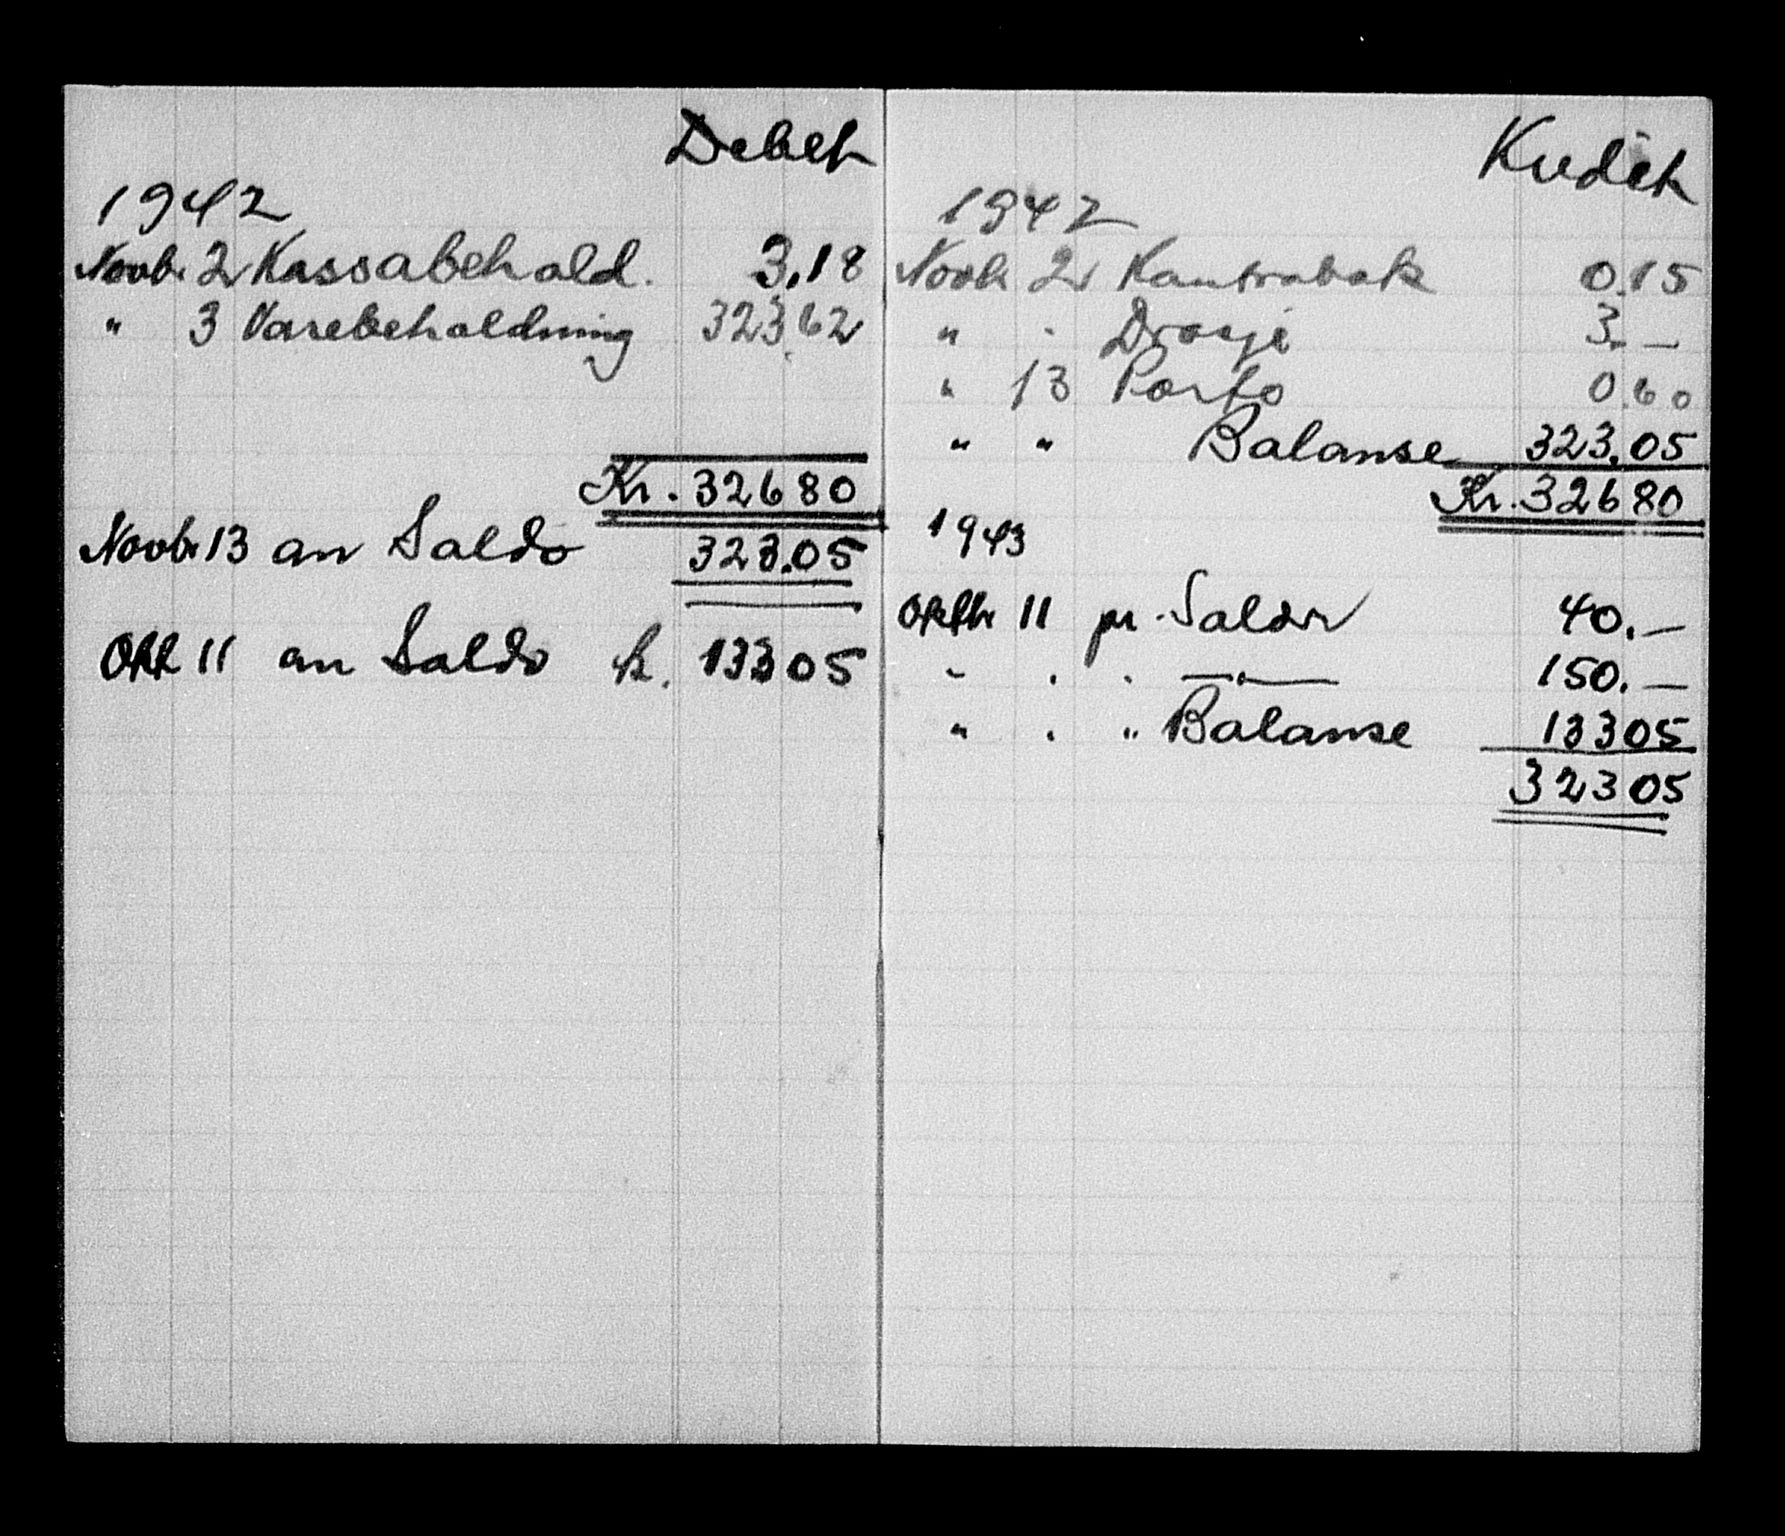 Debet
1942
Novbr 2 Kassabehold. 3.18
" 3 Varebeholdning 323 62
Kr. 326 80
Novbr 13 an Saldo 323.05
Okt 11 an Saldo k. 133 05
Kredit
1942
Novbr 2 Kontrabok 0.15
" " Drosje 3.—
" 13 Porto 0.60
" " Balanse 323.05
Kr. 326 80
1943
Oktbr 11 pr. Saldo 40.—
" . . —"— 150.—
" . " Balanse 133 05
323 05